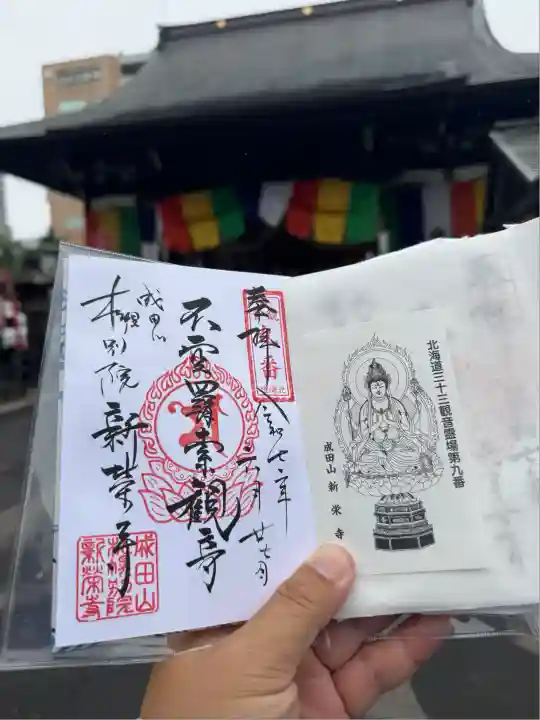 奉拝
令和七年六月廿七日
不空羂索観音
成田山
札幌別院新栄寺
成田山
札幌別院
新栄寺
北海道三十三観音霊場第九番
成田山 新栄寺